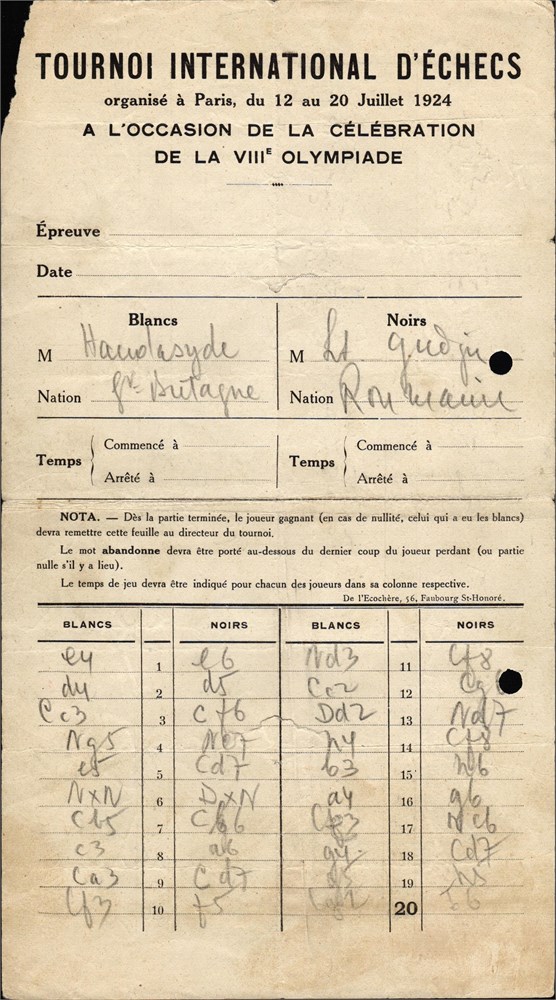 TOURNOI INTERNATIONAL D'ÉCHECS
organisé à Paris, du 12 au 20 Juillet 1924
A L'OCCASION DE LA CÉLÉBRATION
DE LA VIIIE OLYMPIADE
Épreuve
Date
Blancs Noirs
M Handasyde M Lt Gudju
Nation Gr. Bretagne Nation Roumanie
Temps Commencé à Temps Commencé à
Arrêté à Arrêté à
NOTA. — Dès la partie terminée, le joueur gagnant (en cas de nullité, celui qui a eu les blancs)
devra remettre cette feuille au directeur du tournoi.
Le mot abandonne devra être porté au-dessous du dernier coup du joueur perdant (ou partie
nulle s'il y a lieu).
Le temps de jeu devra être indiqué pour chacun des joueurs dans sa colonne respective.
De l'Ecochère, 56, Faubourg St-Honoré.
BLANCS NOIRS BLANCS NOIRS
e4 1 e6 Nd3 11 Cf8
d4 2 d5 Ce2 12 Cg6
Cc3 3 Cf6 Dd2 13 Nd7
Ng5 4 Ne7 h4 14 Cf8
e5 5 Cd7 b3 15 h6
N×N 6 D×N a4 16 g6
Cb5 7 Cb6 17 Nc6
c3 8 a6 g4 18 Cd7
Ca3 9 Cd7 g5 19 h5
Cf3 10 f5 20